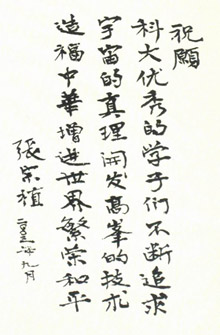 祝愿
科大优秀的学子们不断追求
宇宙的真理开发高峯的技术
造福中華增进世界繁荣和平
張宗植
二〇〇三年九月